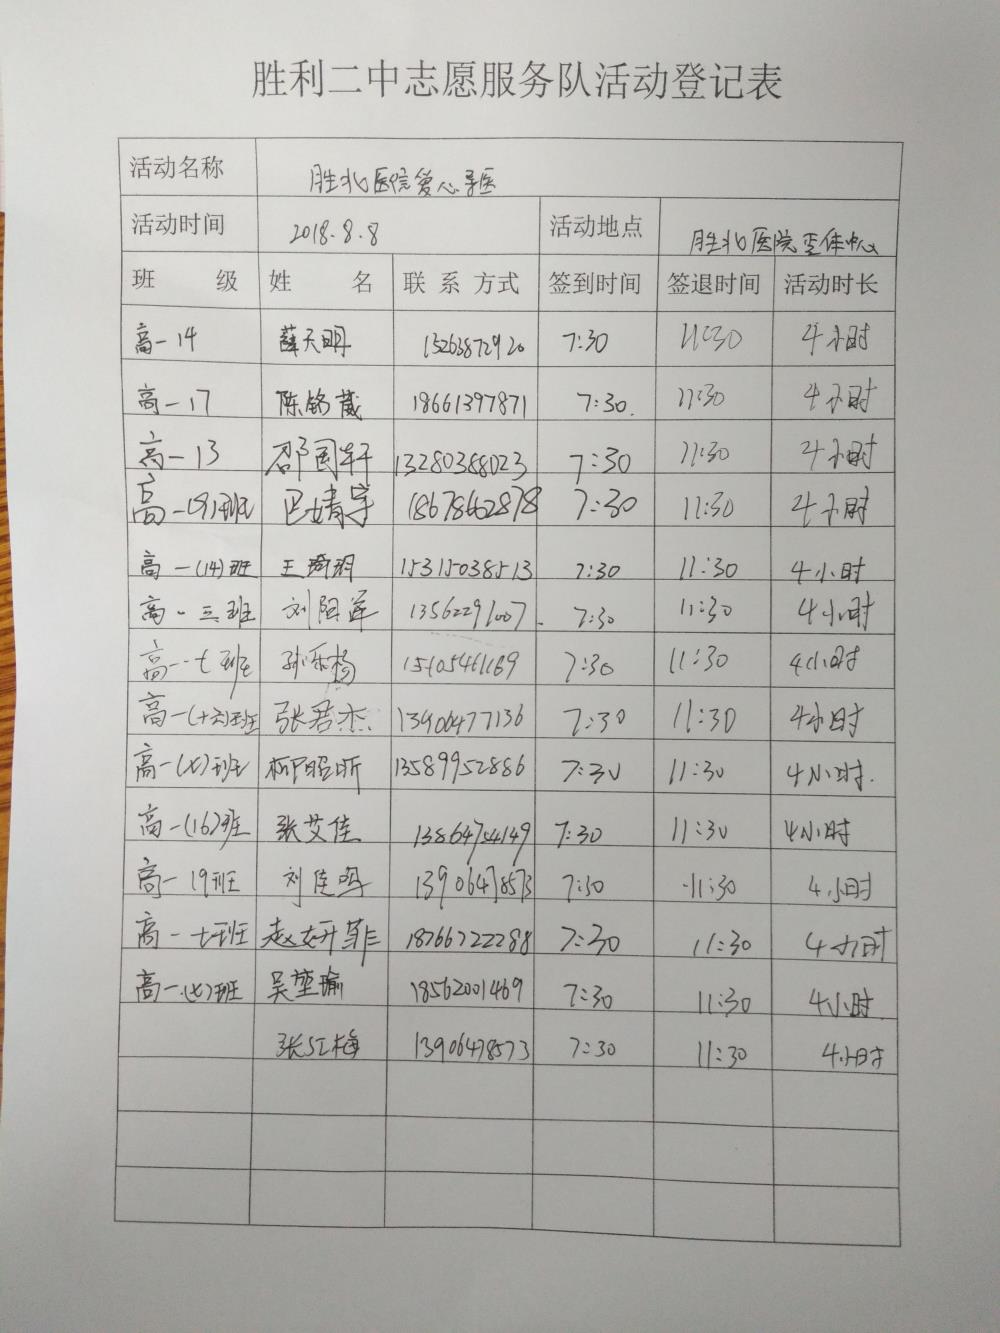 胜利二中志愿服务队活动登记表
活动名称 胜北医院爱心导医
活动时间 2018.8.8 活动地点 胜北医院查体中心
班级 姓名 联系方式 签到时间 签退时间 活动时长
高一14 薛天明 13263872920 7:30 11:30 4小时
高一17 陈铭葳 18661397871 7:30. 11:30 4小时
高一13 邵国轩 13280388023 7:30 11:30 4小时
高一(9)班 巴婧宇 18678662878 7:30 11:30 4小时
高一(14)班 王琦玥 15315038513 7:30 11:30 4小时
高一三班 刘阳 13562291007. 7:30 11:30 4小时
高一七班 孙乐杨 15105461169 7:30 11:30 4小时
高一(十六)班 张君杰 13406477136 7:30 11:30 4小时
高一(七)班 柳昭昕 13589952886 7:30 11:30 4小时.
高一(16)班 张艾佳 13864754149 7:30 11:30 4小时
高一19班 刘佳鸣 13906478573 7:30 11:30 4小时
高一七班 赵妍菲 18766722288 7:30 11:30 4小时
高一(七)班 吴堇瑜 18562001469 7:30 11:30 4小时
张红梅 13906478573 7:30 11:30 4小时